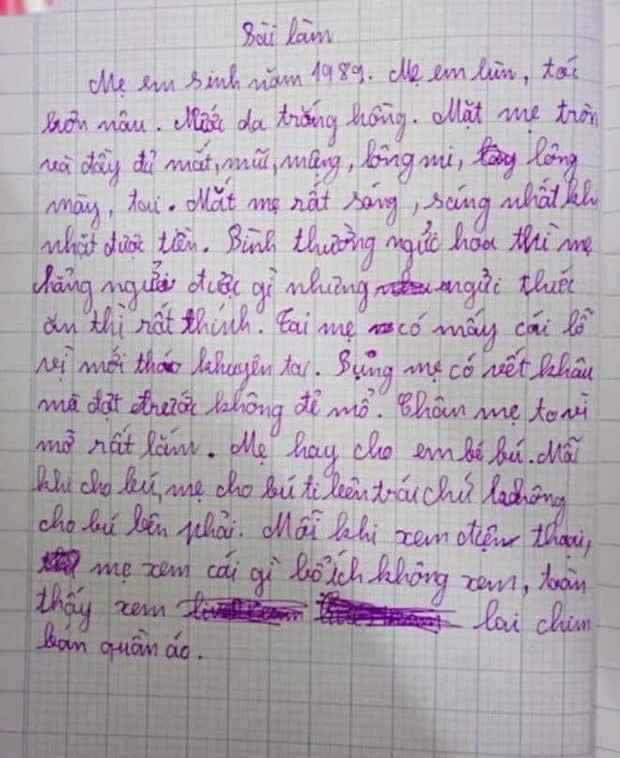 Bài làm
Mẹ em sinh năm 1989. Mẹ em lùn, tóc
hơn nâu. Nước da trắng hồng. Mặt mẹ tròn
và đầy đủ mắt, mũi, miệng, lông mi, lông
mày, tai. Mắt mẹ rất sáng, sáng nhất khi
nhặt được tiền. Bình thường ngửi hoa thì mẹ
chẳng ngửi được gì nhưng ngửi thức
ăn thì rất thính. Tai mẹ có mấy cái lỗ
vì mới tháo khuyên tai. Bụng mẹ có vết khâu
mà đợt trước không đẻ mổ. Chân mẹ to vì
mỡ rất lắm. Mẹ hay cho em bé bú. Mỗi
khi cho bú, mẹ cho bú ti bên trái chứ không
cho bú bên phải. Mỗi khi xem điện thoại,
mẹ xem cái gì bổ ích không xem, toàn
thấy xem lai chim
bán quần áo.